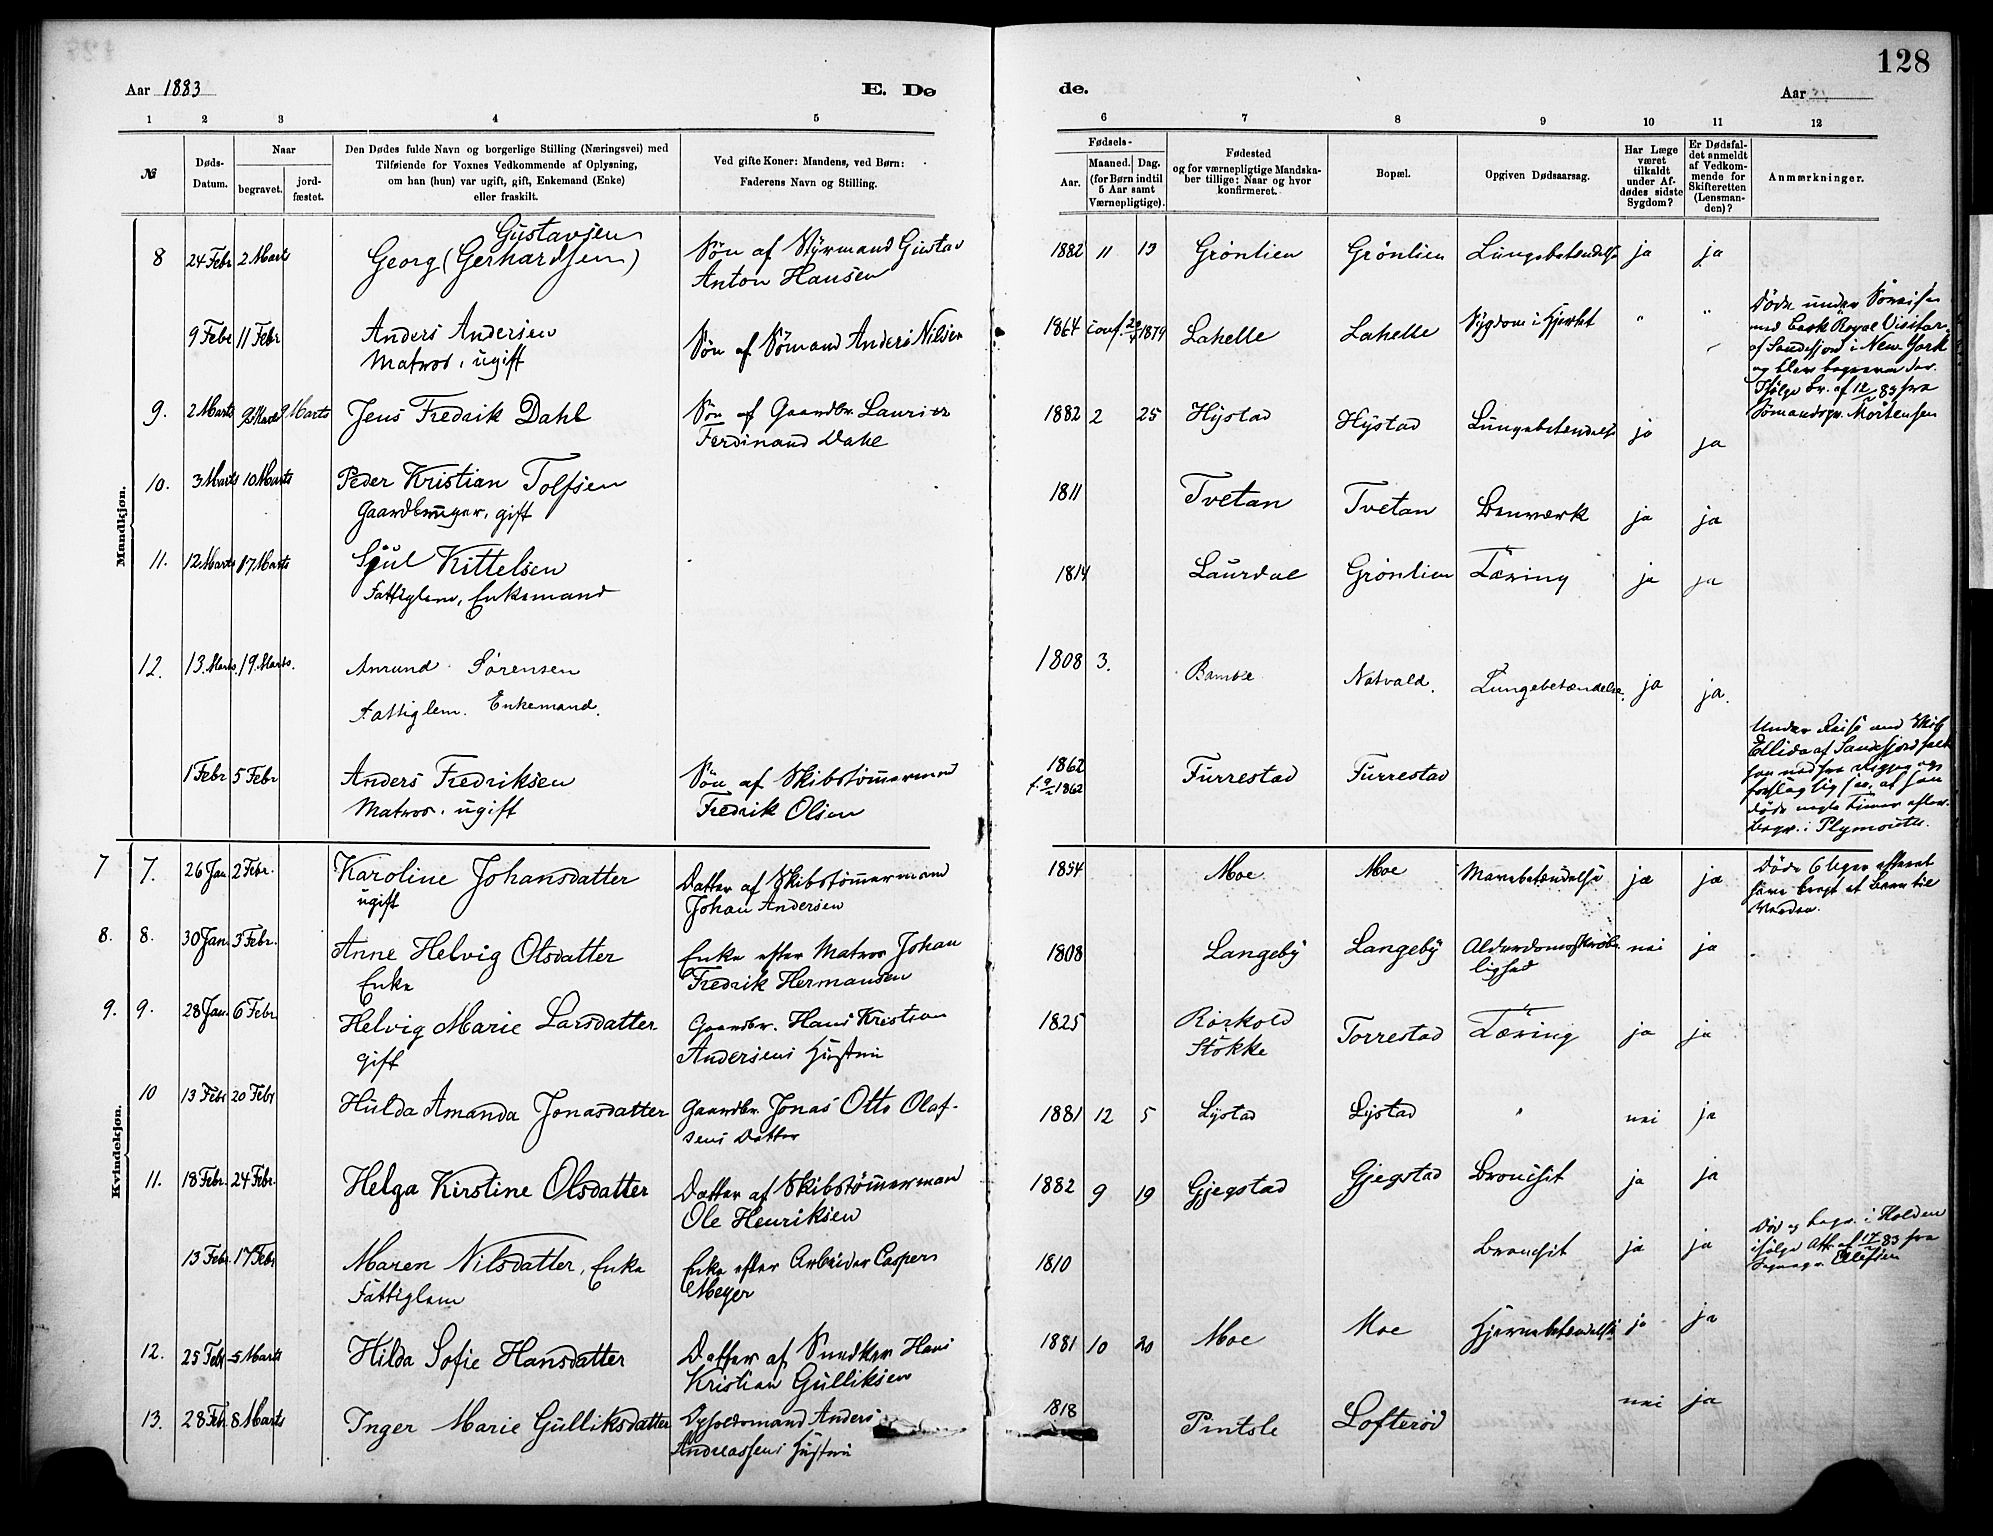 128
Aar 1883
E. Dø
de.
Aar
1 2 3 4 5 6 7 8 9 10 11 12
№
Døds-
Datum.
Naar
begravet.
jord-
fæstet.
Den Dødes fulde Navn og borgerlige Stilling (Næringsvei) med
Tilføiende for Voxnes Vedkommende af Oplysning,
om han (hun) var ugift, gift, Enkemand (Enke)
eller fraskilt.
Ved gifte Koner: Mandens, ved Børn:
Faderens Navn og Stilling.
Fødsels-
Aar.
Maaned. Dag.
(for Børn indtil
5 Aar samt
Værnepligtige).
Fødested
og for værnepligtige Mandska-
ber tillige: Naar og hvor
konfirmeret.
Bopæl.
Opgiven Dødsaarsag.
Har Læge
været
tilkaldt
under Af-
dødes sidste
Sygdom?
Er Dødsfal-
det anmeldt
af Vedkom-
mende for
Skifteretten
(Lensman-
den)?
Anmærkninger.
Mandkjøn.
Gustavsen
8 24 Febr 2 Marts Georg (Gerhardsen) Søn af Styrmand Gustav 1882 11 13 Grönlien Grönlien Lungebetændelse ja ja
Anton Hansen
9 Febr 11 Febr Anders Andersen Søn af Sömand Anders Nilsen 1864 conf. 1879 Lahelle Lahelle Sygdom i Hjertet " "
Matros, ugift
Döde under Söreise
med Bark Royal Visitar
af Sandefjord i New York
og blev begraven der.
Ifølge Br. af 12/ 83 fra
Sømandspr. Mortensen
9. 2 Marts 9 Marts 9 Marts Jens Fredrik Dahl Søn af Gaardbr. Laurits 1882 2 25 Hystad Hystad Lungebetændelse ja ja
Ferdinand Dahl
10. 3 Marts 10 Marts Peder Kristian Tolfsen 1811 Tvetan Tvetan Benværk ja ja
Gaardbruger, gift
11. 12 Marts 17 Marts Sjul Kittelsen 1814 Laurdal Grönlien Tæring ja ja
Fattiglem, Enkemand
12. 13. Marts. 19. Marts. Amund Sörensen 1808 3. Bamble Natvald. Lungebetændelse. ja ja.
Fattiglem. Enkemand.
1 Febr 5 Febr Anders Fredriksen Søn af Skibstømmermand 1862 Furrestad Furrestad
Matros. ugift Fredrik Olsen f. 9/ 1862
Under Reise med Skib
Ellida af Sandefjord faldt
han ned fra Rigget og
forslog sig saa, at han
døde nogle Timer efter.
begr. i Plymouth.
Kvindekjøn.
7 7. 26 Jan 2 Febr. Karoline Johansdatter Datter af Skibstømmermand 1854 Moe Moe Mavebetændelse ja ja Döde 6 Uger efterat
ugift Johan Andersen have bragt et Barn til
Verden.
8. 8. 30 Jan. 3 Febr. Anne Helvig Olsdatter Enke efter Matros Johan 1808 Langeby Langeby Alderdomsskrøbe- nei ja
Enke Fredrik Hermansen lighed
9. 9. 28 Jan. 6 Febr. Helvig Marie Larsdatter Gaardbr. Hans Kristian 1825 Rørkold Torrestad Tæring ja ja
gift Andersens Hustru Stokke
10 13 Febr 20 Febr Hulda Amanda Jonasdatter Gaardbr. Jonas Otto Olaf- 1881 12 5 Lystad Lystad " nei ja
sens Datter
11. 18 Febr. 24 Febr. Helga Kirstine Olsdatter Datter af Skibstømmermand 1882 9 19 Gjegstad Gjegstad Bronchit ja ja
Ole Henriksen
13 Febr. 17 Febr. Maren Nilsdatter, Enke Enke efter Arbeider Casper 1810 Bronchit ja ja Död og begr. i Holden
Fattiglem Meyer ifølge Att. af 17/ 83 fra
Sognepr. Ellefsen
12. 25 Febr 5 Marts Hilda Sofie Hansdatter Datter af Snedker Hans 1881 10 20 Moe Moe Hjernebetændelse ja ja
Kristian Gulliksen
13. 28 Feb. 8 Marts Inger Marie Gulliksdatter Opholdsmand Anders 1818 Pintsle Lofteröd nei ja
Andreassens Hustru